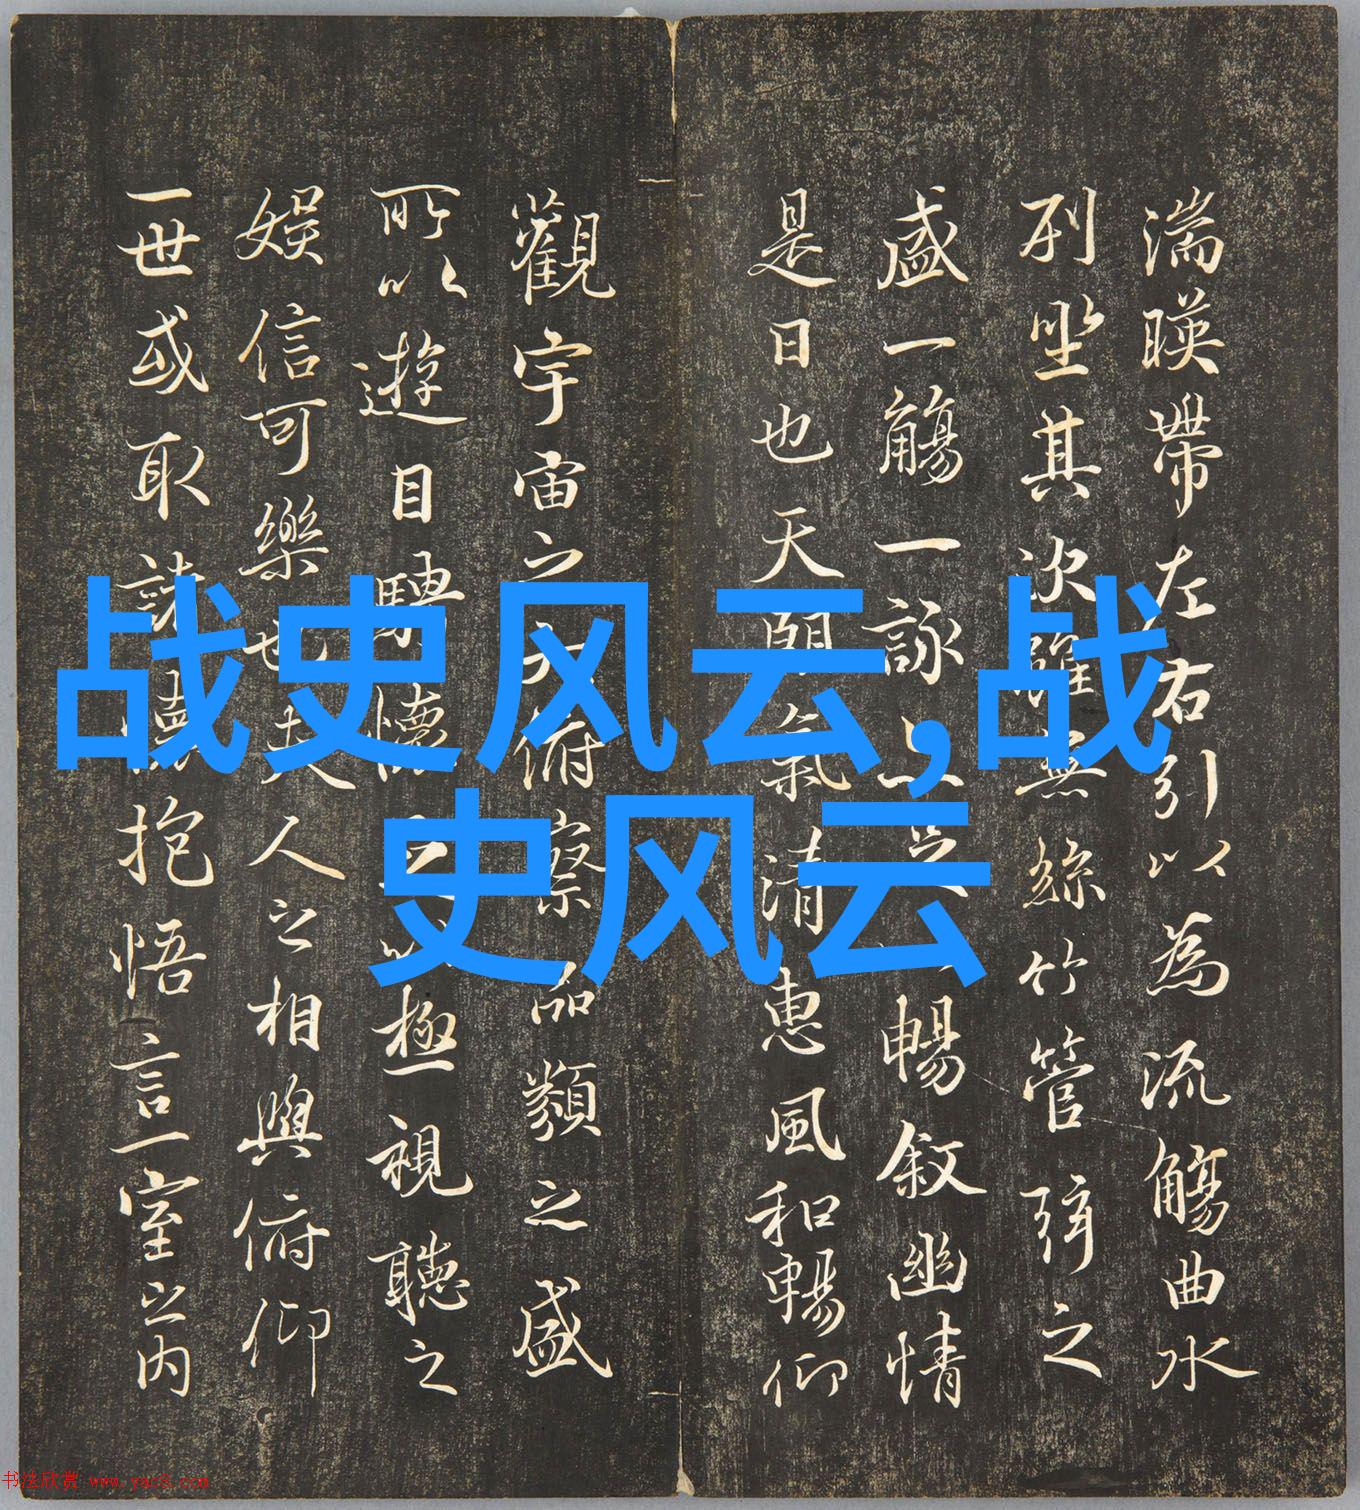 湍暎帶左右引以為流觴曲水
列坐其次雖無絲竹管弦之
盛一觴一詠暢敘幽情
是日也天朗氣清惠風和暢仰
觀宇宙之大俯察品類之盛
所以遊目騁懷足以極視聽之
娛信可樂也夫人之相與俯仰
一世或取諸懷抱悟言一室之内
战史风云,战
史风云
书法欣赏 www.yac8.com